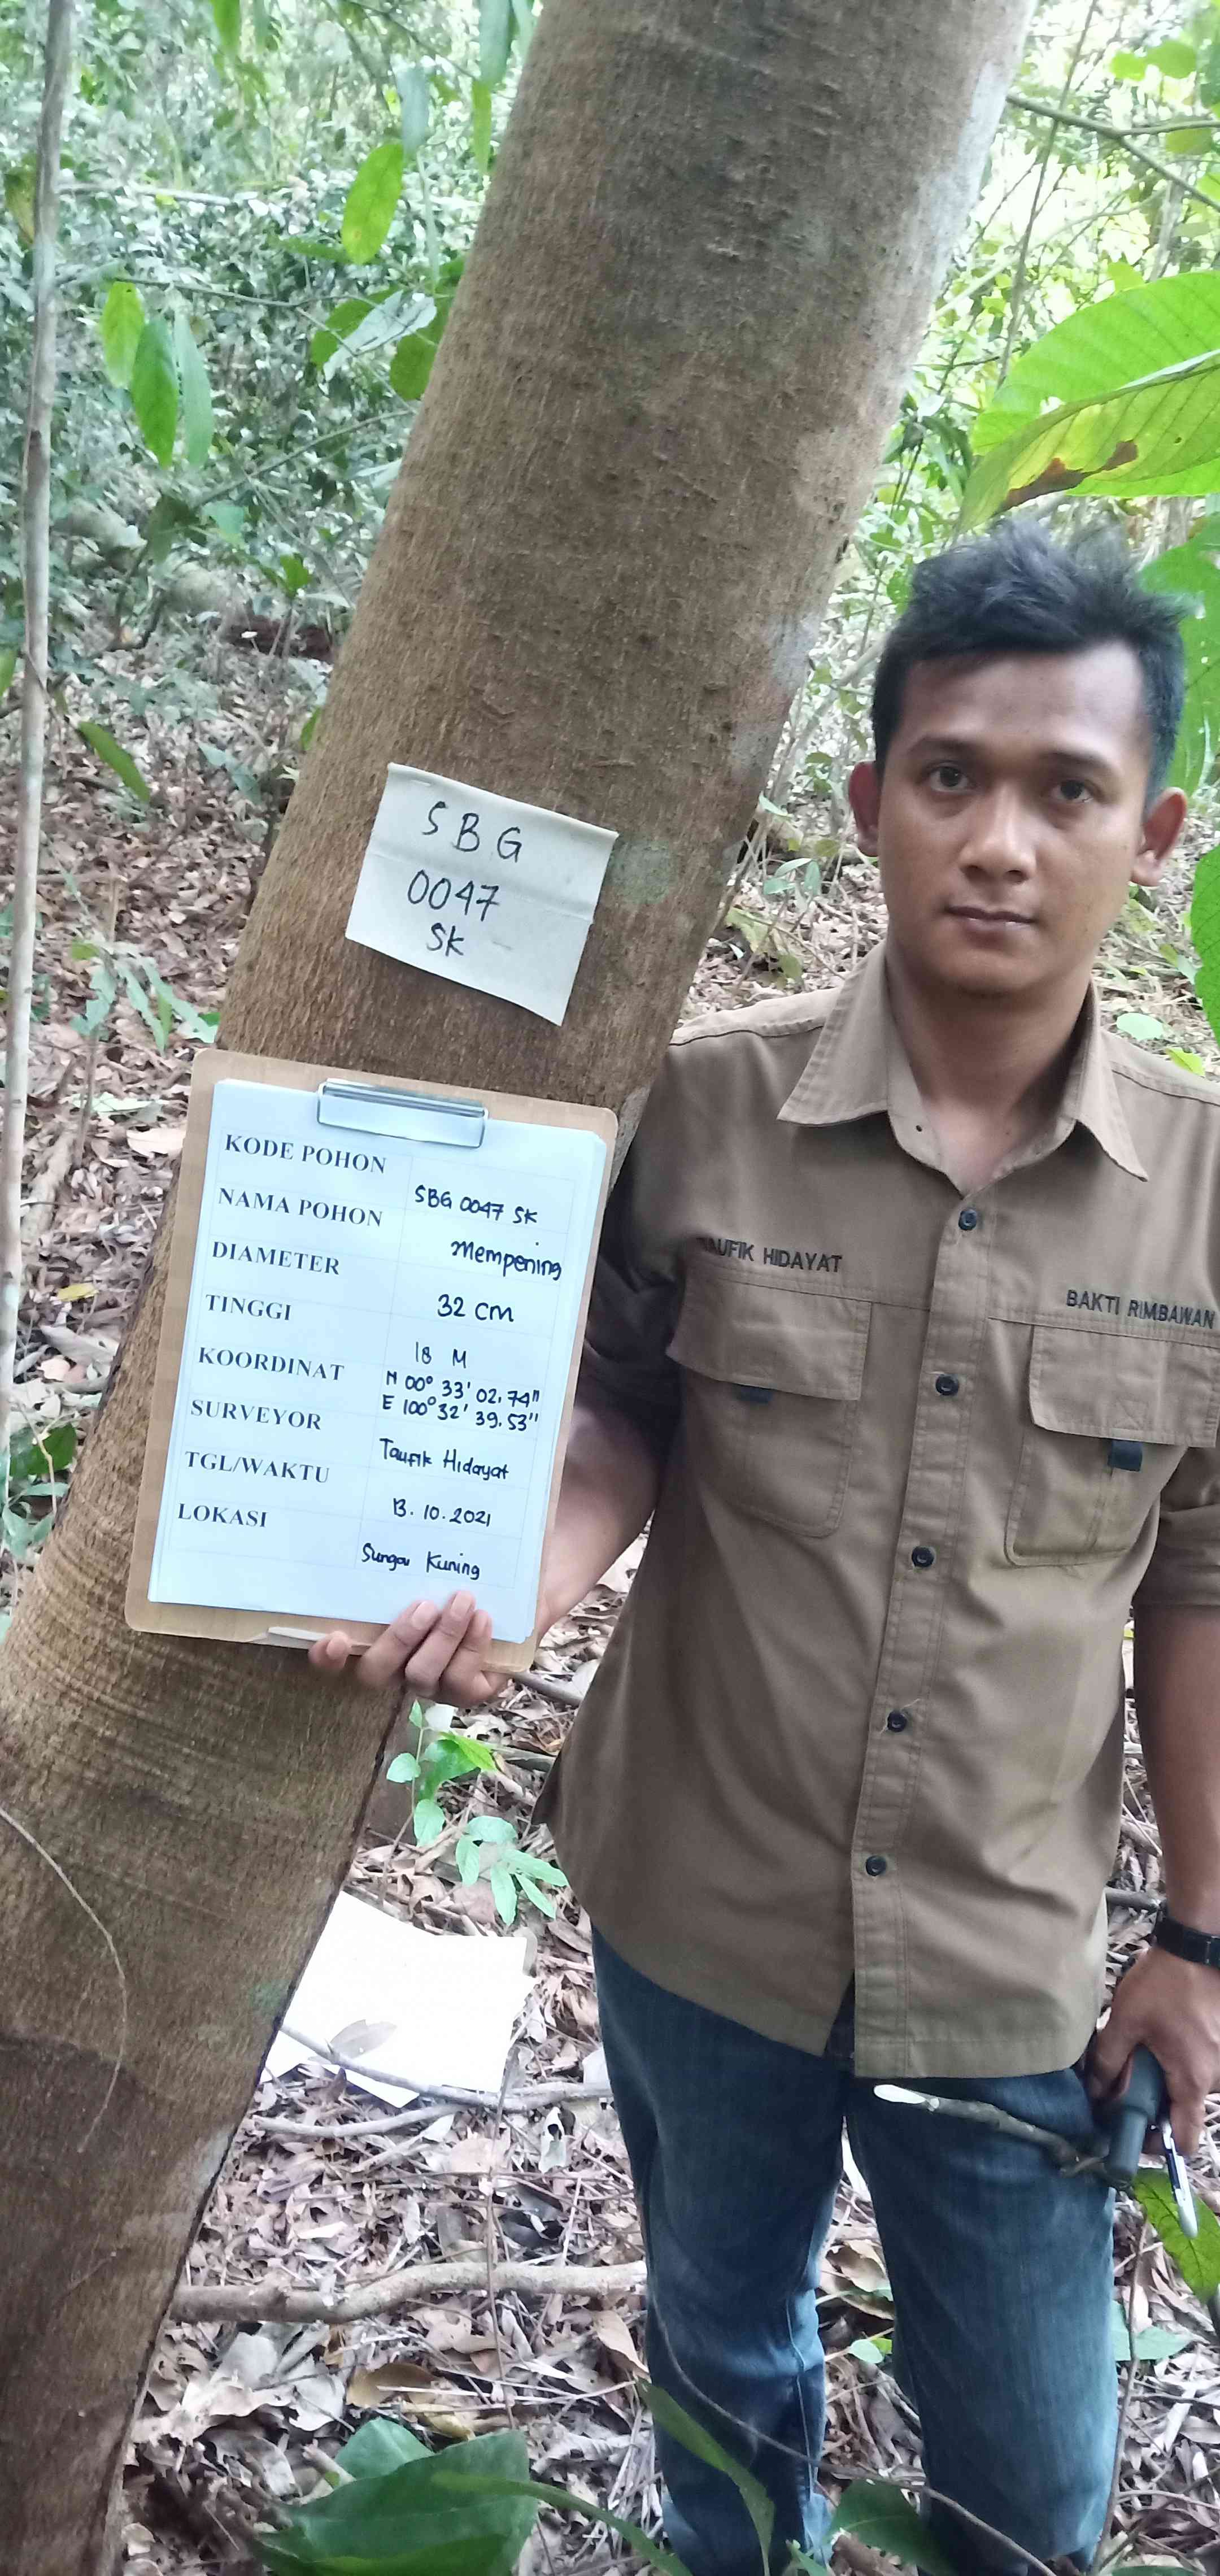 SBG
0047
SK
KODE POHON SBG 0047 SK
NAMA POHON Mempening
DIAMETER 32 cm
TINGGI 18 M
KOORDINAT N 00° 33' 02.74"
E 100° 32' 39.53"
SURVEYOR Taufik Hidayat
TGL/WAKTU 13.10.2021
LOKASI Sungai Kuning
TAUFIK HIDAYAT
BAKTI RIMBAWAN